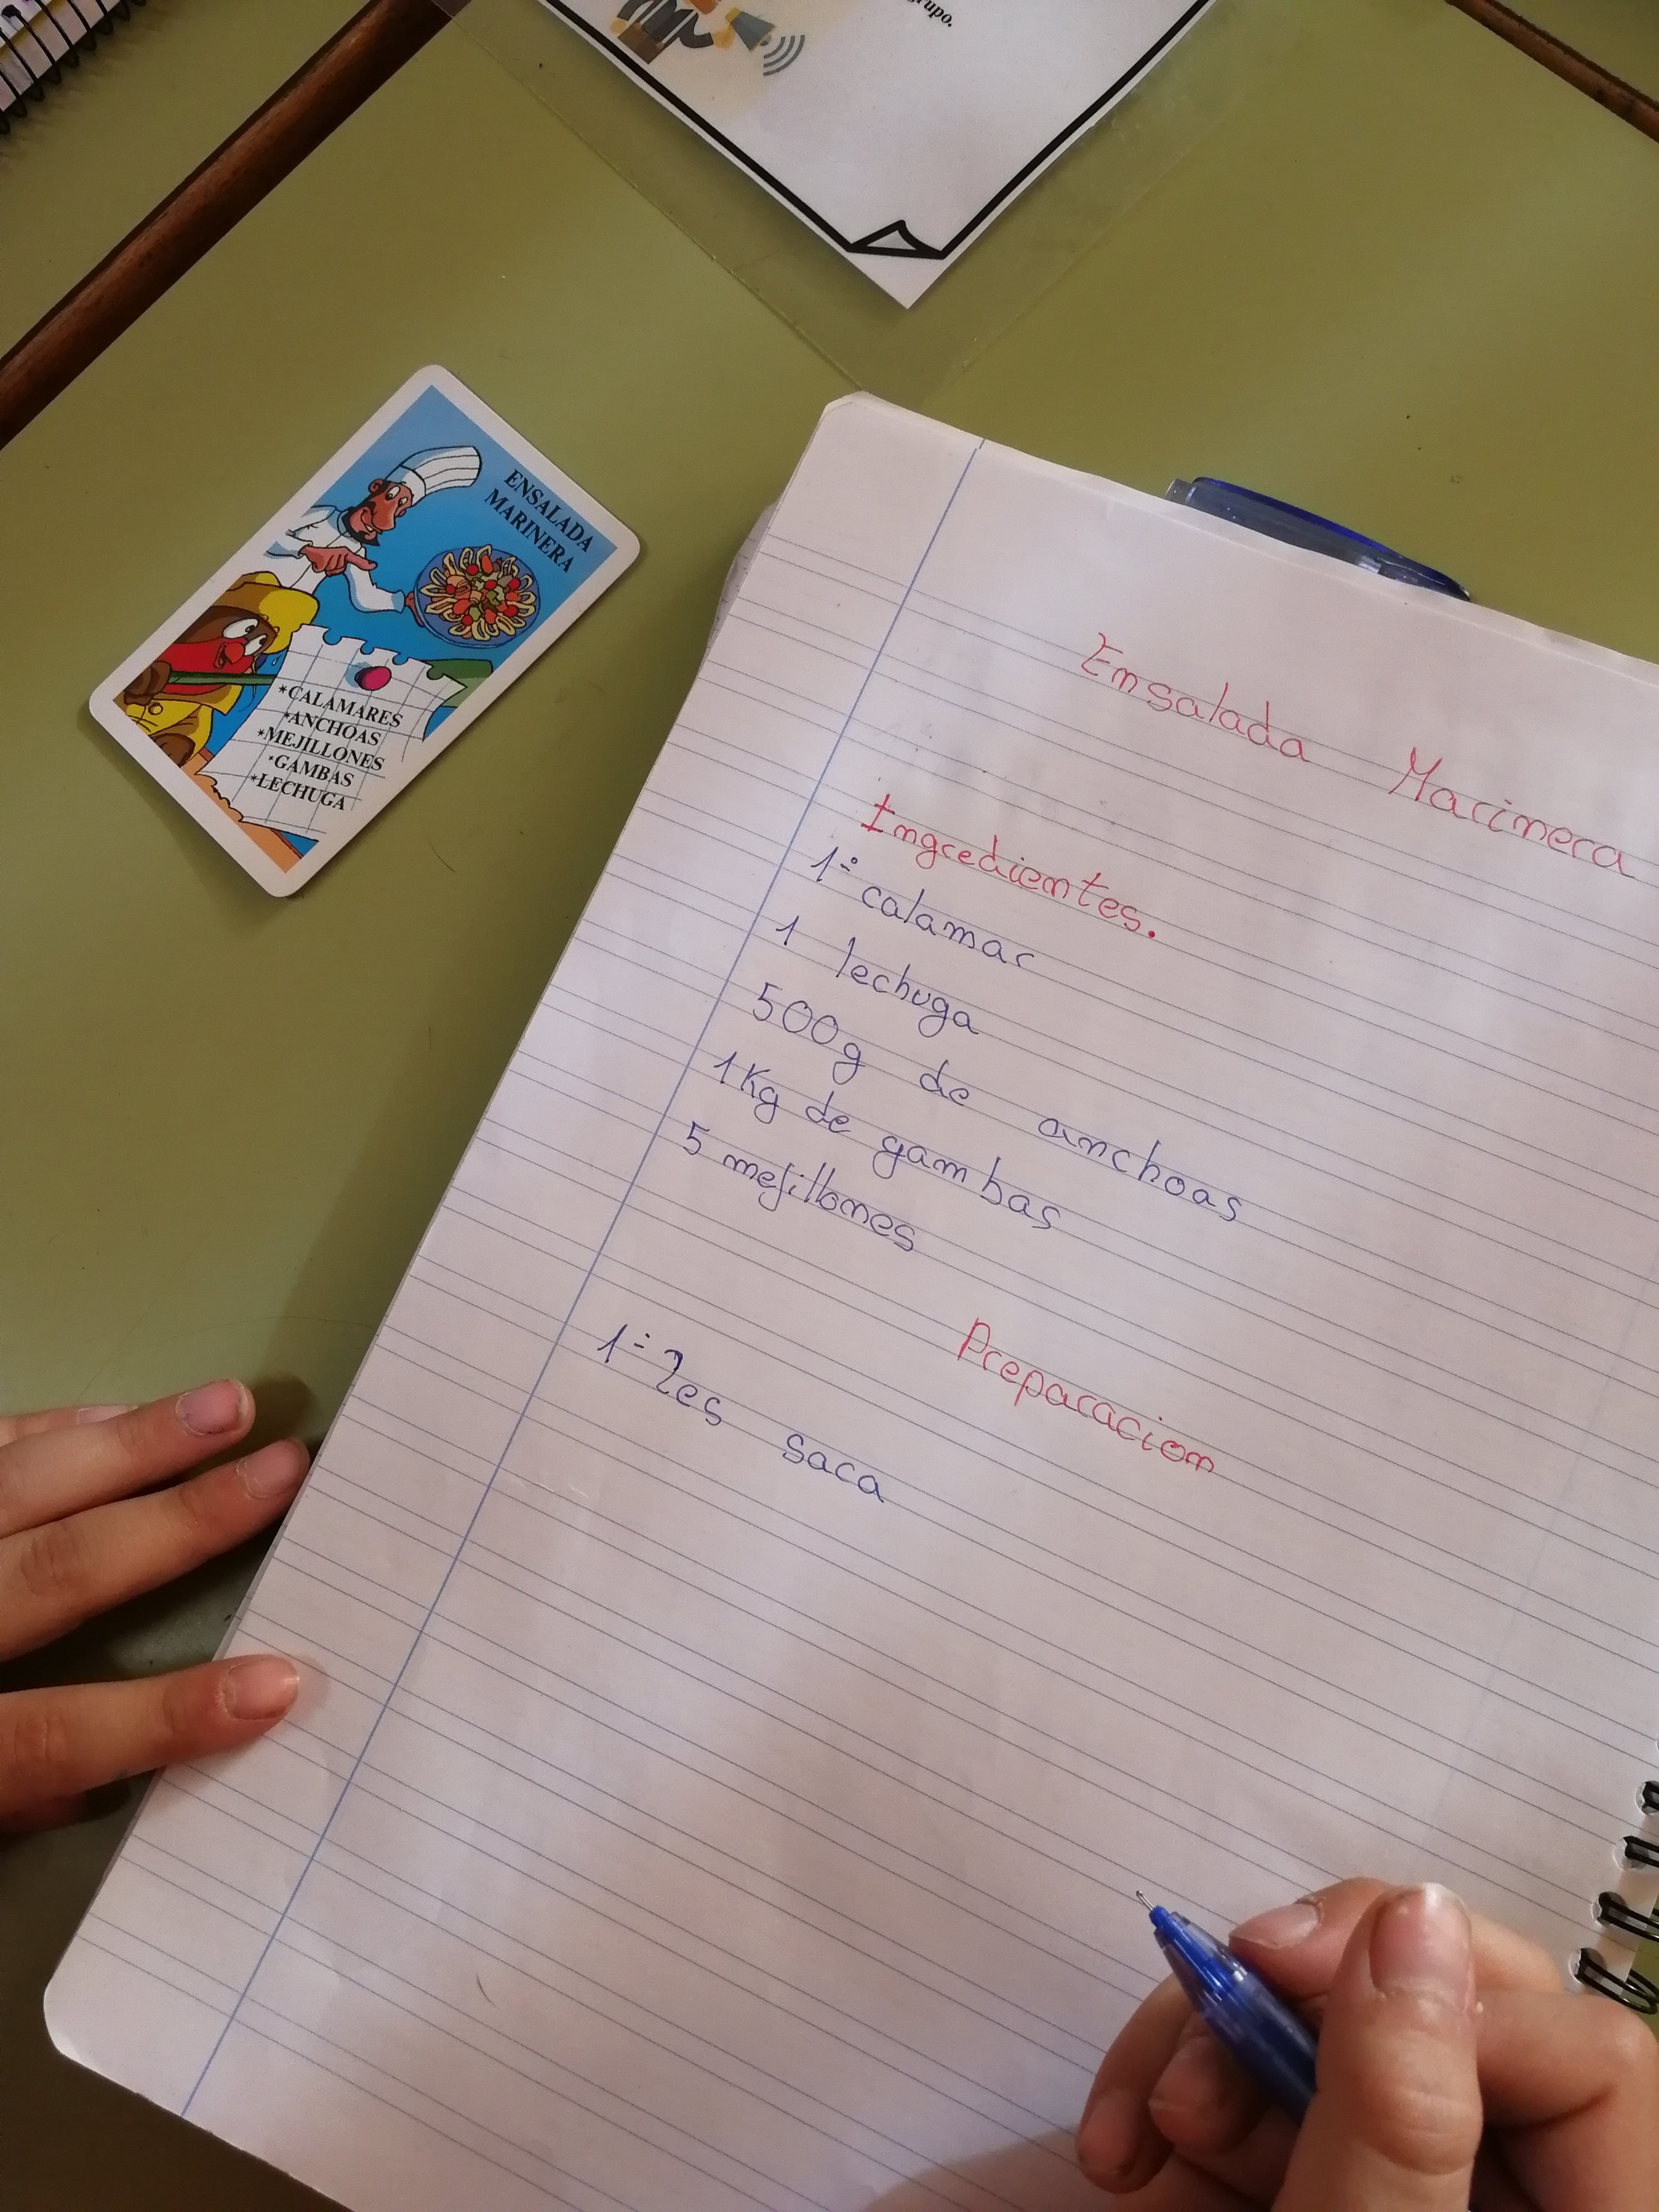 grupo.
ENSALADA
MARINERA
*CALAMARES
*ANCHOAS
*MEJILLONES
*GAMBAS
*LECHUGA
Ensalada Marinera
Ingredientes.
1º calamar
1 lechuga
500g de anchoas
1Kg de gambas
5 mejillones
Preparacion
1º Les saca